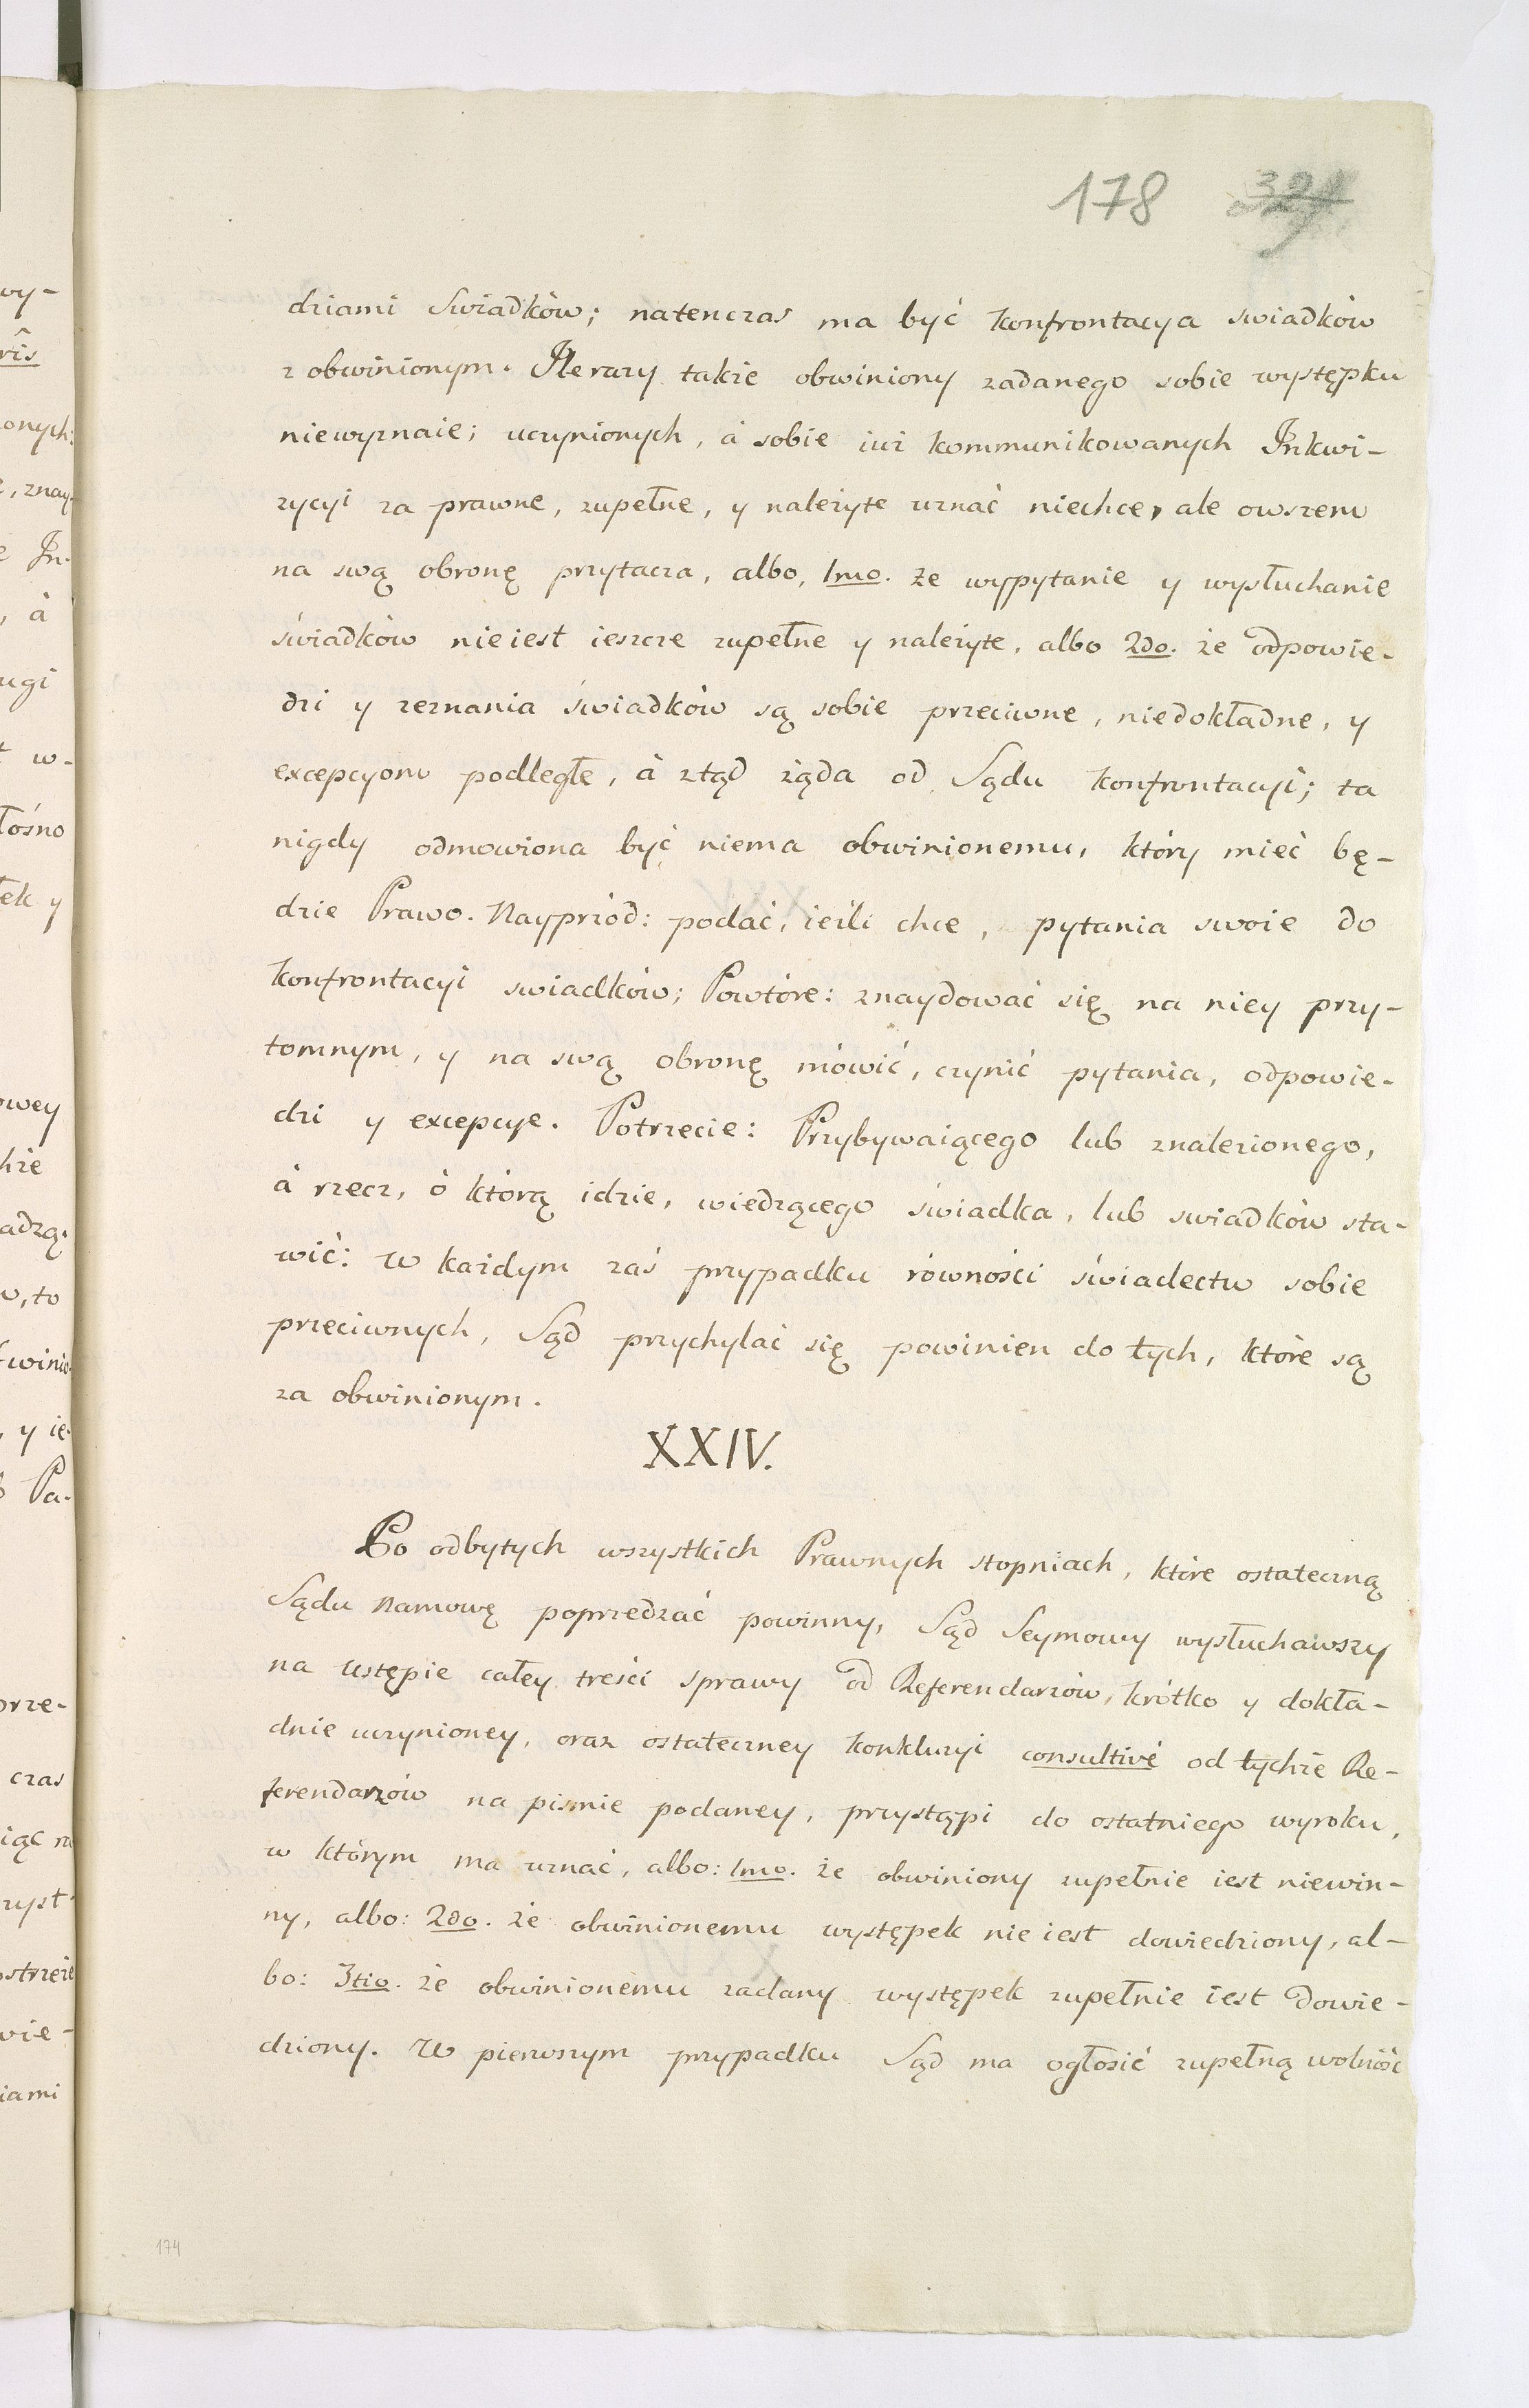 178 321
dziami Swiadków; natenczas ma być konfrontacya swiadków
z obwinionym. Ilerazy takze obwiniony zadanego sobie występku
niewyznaie; uczynionych, á sobie iuż kommunikowanych Inkwi-
zycyi za prawne, zupełne, y należyte uznać niechce, ale owszem
na swą obronę przytacza, albo, 1mo. że wypytanie y wysłuchanie
świadków nieiest ieszcze zupełne y należyte, albo 2do. że odpowie-
dzi y zeznania świadków są sobie przeciwne, niedokładne, y
excepcyom podległe, á ztąd żąda od Sądu konfrontacyi; ta
nigdy odmowiona być niema obwinionemu, który mieć bę-
dzie Prawo. Nayprzód: podać, ieśli chce, pytania swoie do
konfrontacyi swiadków; Powtóre: znaydować się na niey przy-
tomnym, y na swą obronę mówić, czynić pytania, odpowie-
dzi y excepcye. Potrzecie: Przybywaiącego lub znalezionego,
á rzecz, ó którą idzie, wiedzącego świadka, lub swiadków sta-
wić: W każdym zaś przypadku równości świadectw sobie
przeciwnych, Sąd przychylać się powinien do tych, które są
za obwinionym.
XXIV.
Po odbytych wszystkich Prawnych stopniach, które ostateczną
Sądu Namowę poprzedzać powinny, Sąd Seymowy wysłuchawszy
na Ustępie całey treści sprawy od Referendarzów, krótko y dokła-
dnie uczynioney, oraz ostateczney konkluzyi consultivé od tychże Re-
ferendarzów na pismie podaney, przystąpi do ostatniego wyroku,
w którym ma uznać, albo: 1mo. że obwiniony zupełnie iest niewin-
ny, albo: 2do. że obwinionemu występek nie iest dowiedziony, al-
bo: 3tio. że obwinionemu zadany występek zupełnie iest dowie-
dziony. W pierwszym przypadku Sąd ma ogłosić zupełną wolność
174